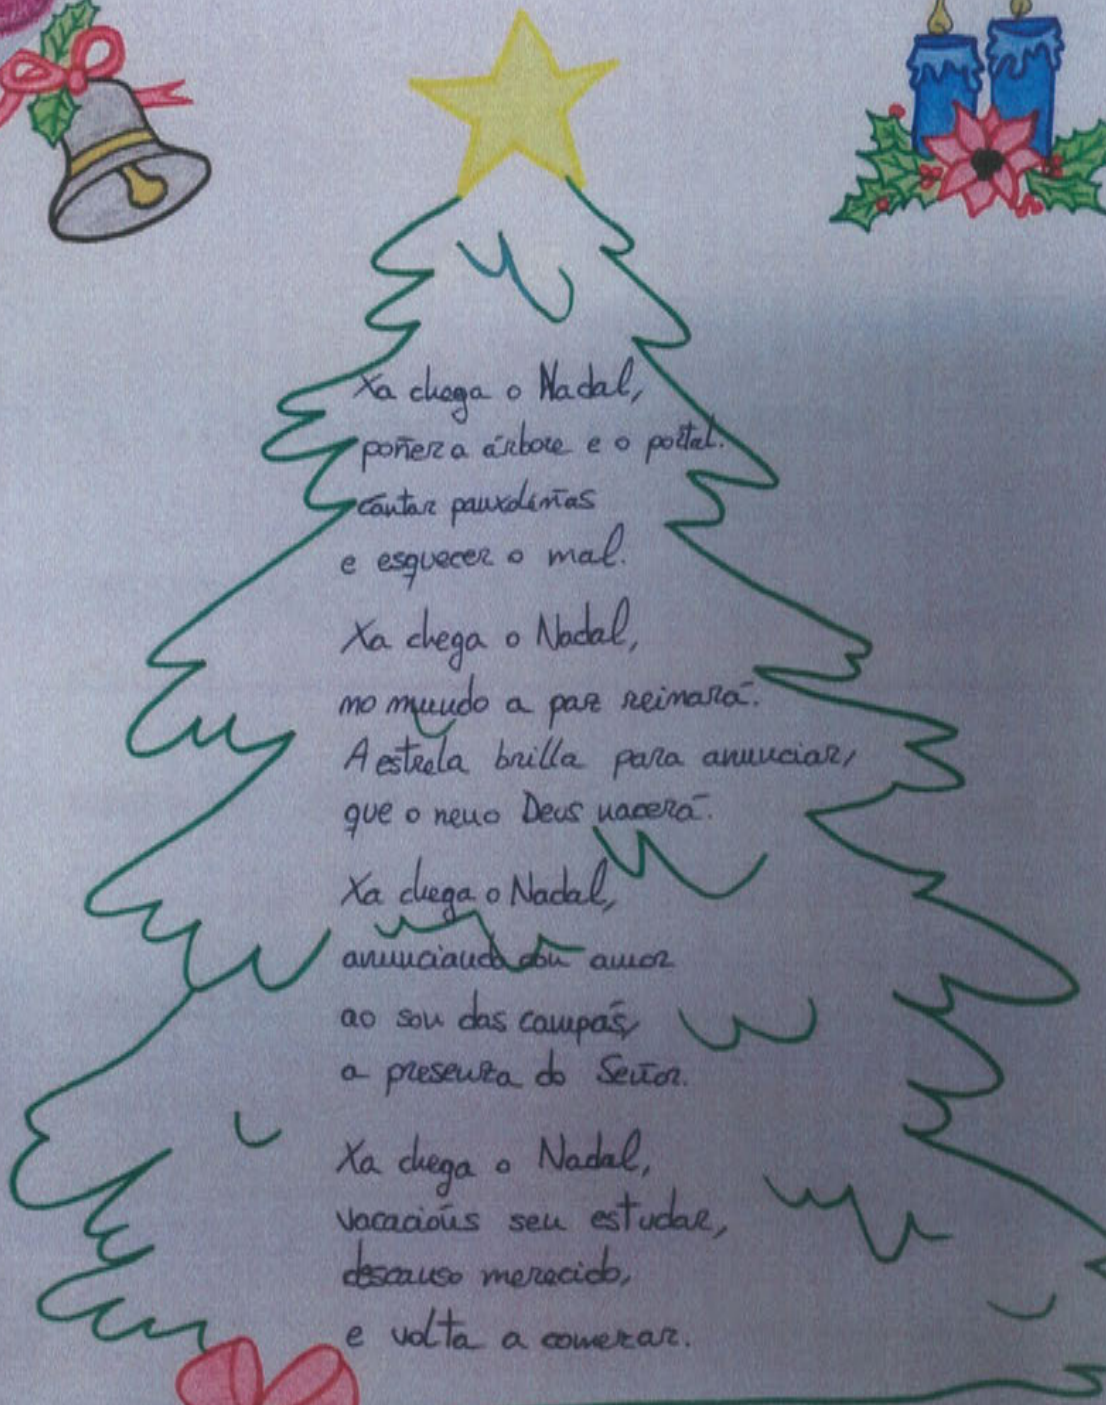 Xa chega o Nadal,
poñer a árbore e o portal.
cantar panxoliñas
e esquecer o mal.
Xa chega o Nadal,
no mundo a paz reinará.
A estrela brilla para anunciar,
que o neno Deus nacerá.
Xa chega o Nadal,
anunciando con amor
ao son das campás,
a presenza do Señor.
Xa chega o Nadal,
vacacións sen estudar,
descanso merecido,
e volta a comezar.